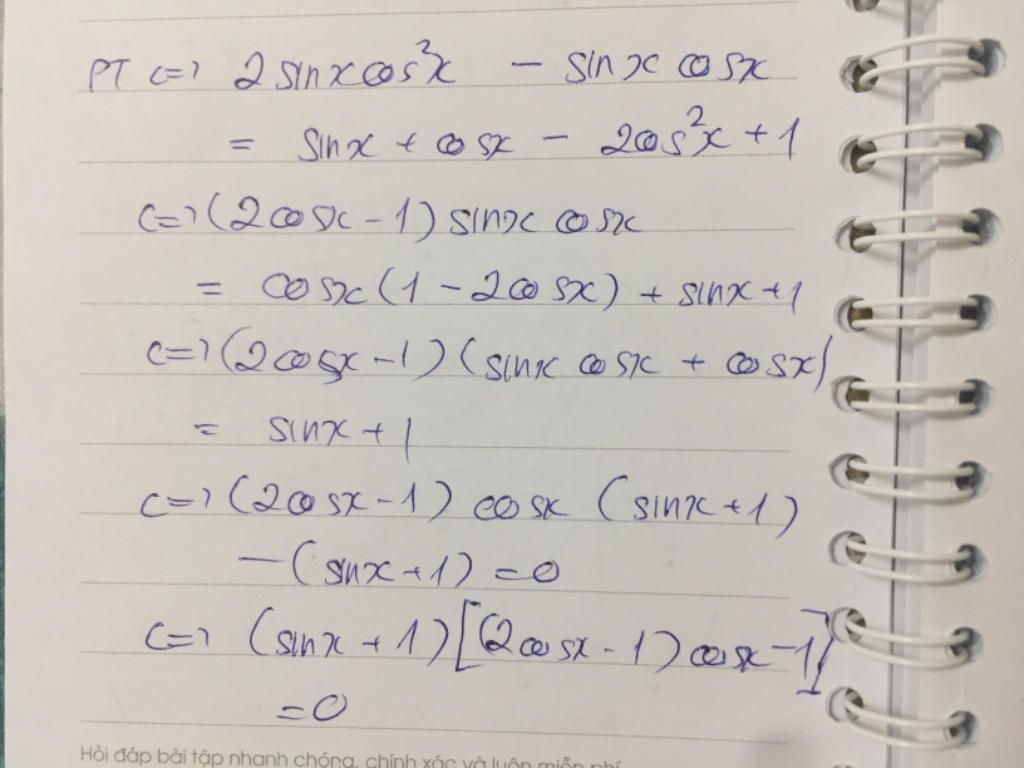 PT <=> 2 sinx cos²x - sinx cosx
= sinx + cosx - 2cos²x + 1
<=> (2cosx - 1) sinx cosx
= cosx(1 - 2cosx) + sinx + 1
<=> (2cosx - 1)(sinx cosx + cosx)
= sinx + 1
<=> (2cosx - 1) cosx (sinx + 1)
-(sinx + 1) = 0
<=> (sinx + 1)[(2cosx - 1) cosx - 1]
= 0
Hỏi đáp bài tập nhanh chóng, chính xác và luôn miễn phí